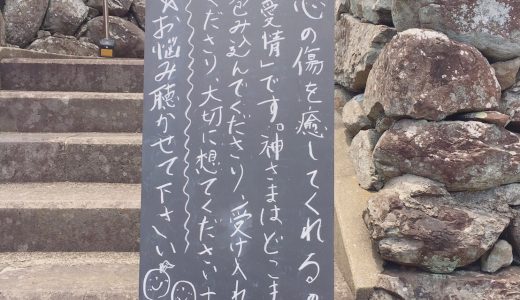 心の傷を癒してくれるの
愛情」です。神さまはどこま
包み込んでくださり、受け入れ
くださり、大切に想てくださいま
お悩み聴かせて下さい